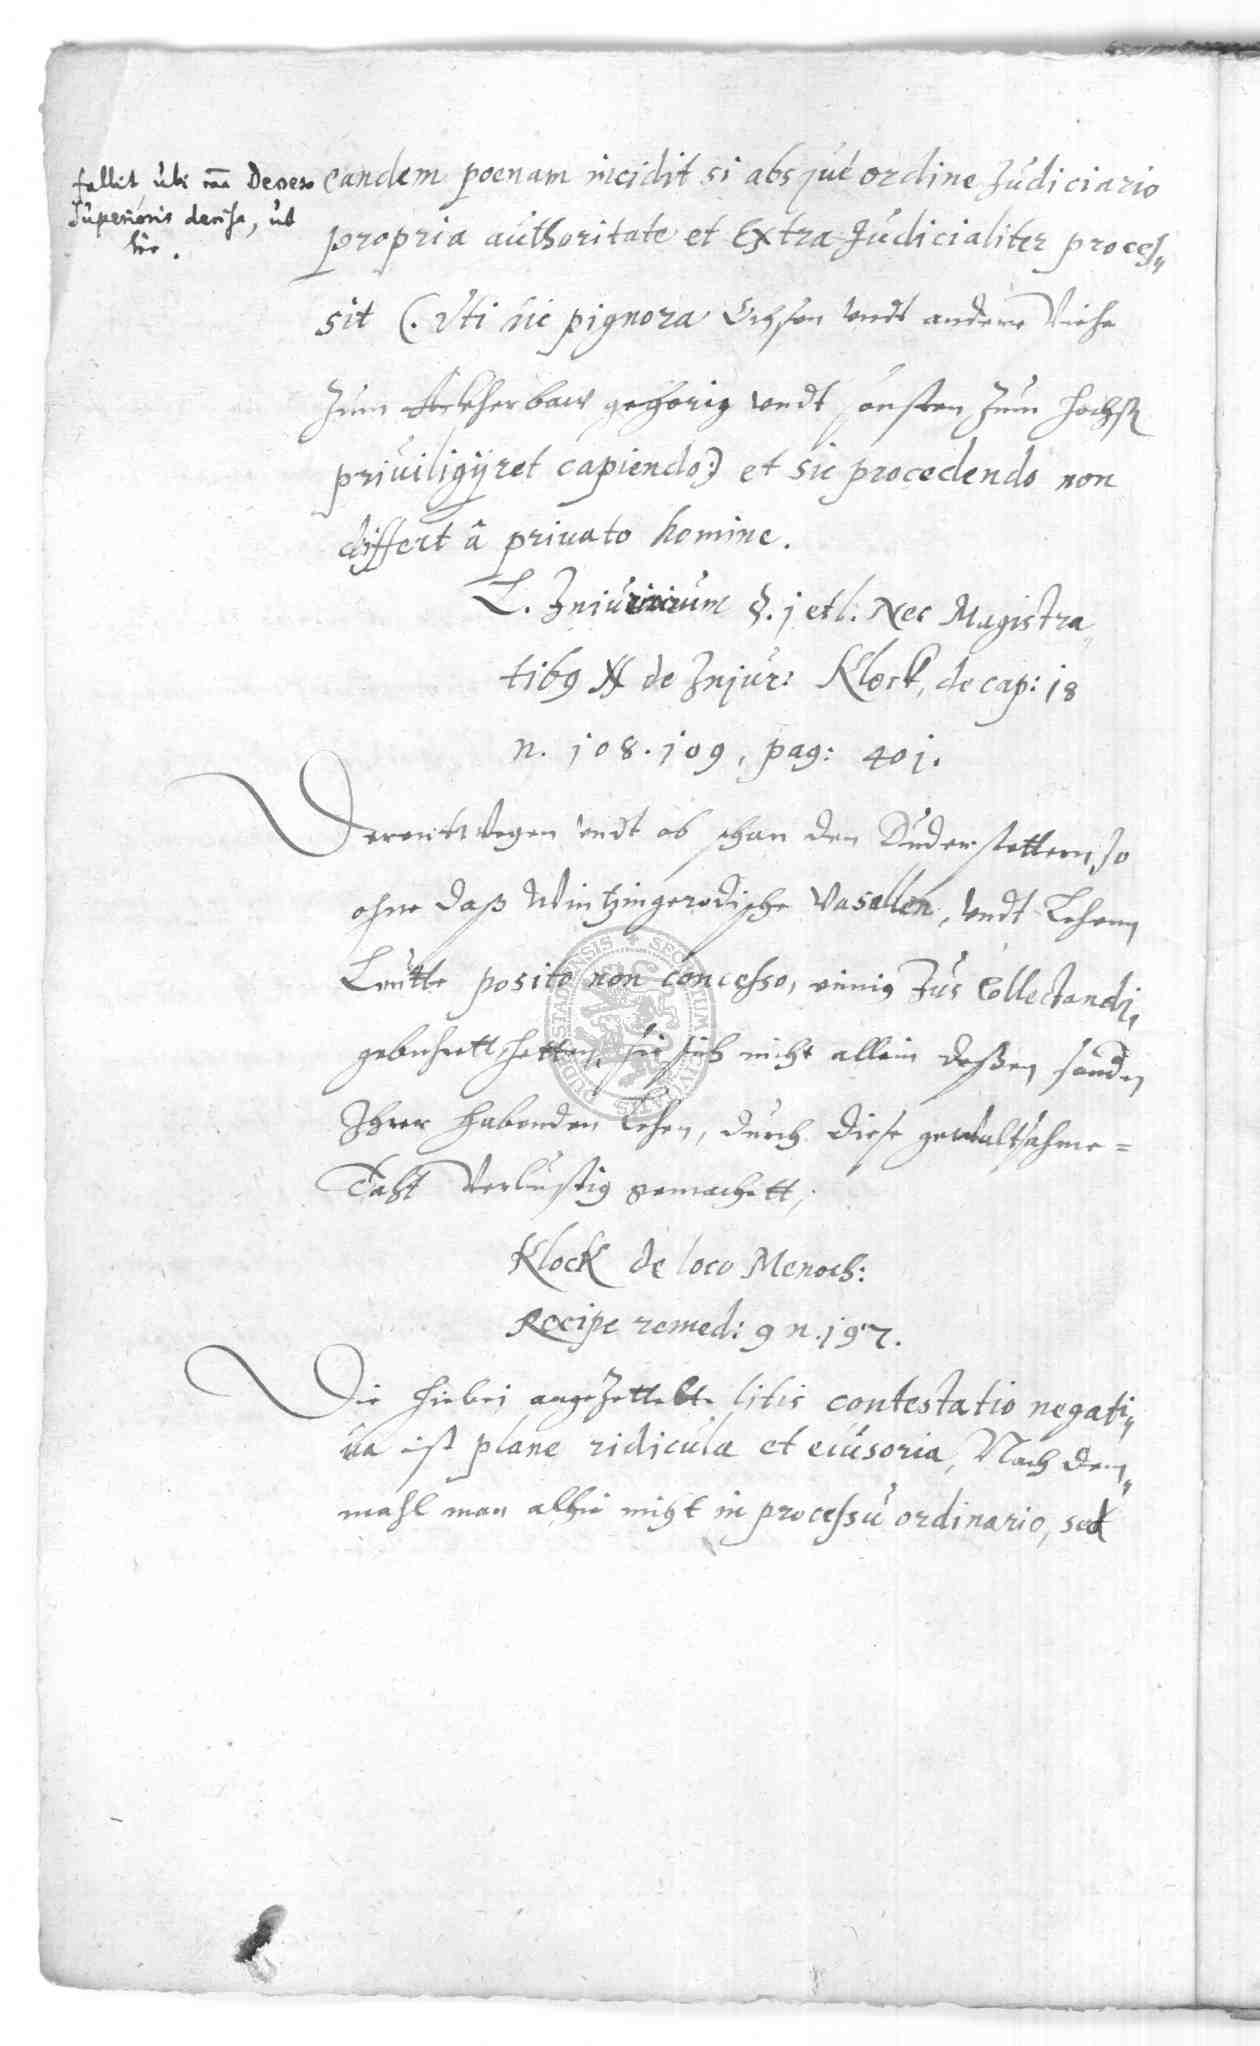 fallit ubi
Superioris
hic.
eandem poenam incidit si absque ordine Judiciario
propria authoritate et Extra Judicialiter proces„
sit (. Uti hic pignora Ochsen undt andere Viehe
Zum Ackherbaw gehorig undt sonsten Zum hochst
priviligijret capiendo:) et sic procedendo non
differt â privato homine.
L. Injuriarum §. j et l: Nec Magistra„
tib9 ff de Injur: Klock, de cap: 18
n. j08. j09, pag: 40j.
Derentwegen undt ob schon den Duderstettern, so
ohne daß Wintzingerodische Vasallen, undt Lehenn
Leutte posito non concesso, einig Jus Collectandi,
gebuhrett hetten, sie sich nicht allein deßen sondern
Ihrer habenden Lehen, durch diese gewaltsahme=
Taht Verlustig gemachett;
Klock de loco Menoch:
Recipe remed: 9 n. j97.
Die hiebei angeZettelte litis contestatio negati„
va ist plane ridicula et elusoria, Nach dem„
mahl man alhie nicht in processu ordinario, sed
SECRETUM CIVITATIS DUDERSTADENSIS